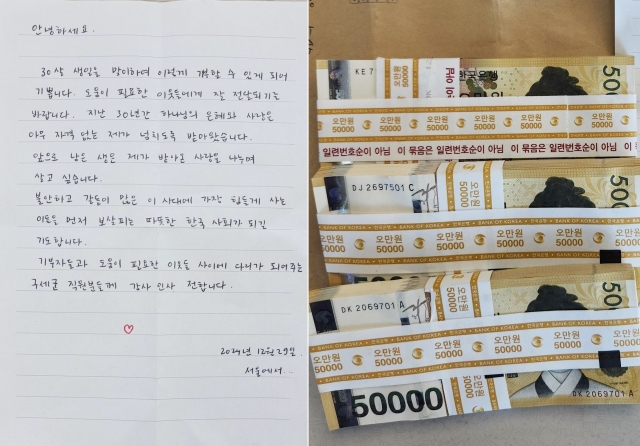 안녕하세요.
30살 생일을 맞이하여 이렇게 기부할 수 있게 되어
기쁩니다. 도움이 필요한 이웃들에게 잘 전달되기를
바랍니다. 지난 30년간 하나님의 은혜와 사랑은
아무 자격 없는 제가 넘치도록 받아왔습니다.
앞으로 남은 생은 제가 받아온 사랑을 나누며
살고 싶습니다.
불안하고 갈등이 많은 이 시대에 가장 힘들게 사는
이들을 먼저 보살피는 따뜻한 한국 사회가 되길
기도합니다.
기부자들과 도움이 필요한 이웃들 사이에 다리가 되어주는
구세군 직원분들께 감사 인사 전합니다.
2024년 12월 29일.
서울에서..
KE 7
오만원 오만원 오만원 오만원 오만원
50000 50000 50000 50000 50000
일련번호순이 아님 이 묶음은 일련번호순이 아님 이
DJ 2697501 C
BANK OF KOREA 한국은행
오만원 오만원 오만원
50000 50000 50000
DK 2069701 A
BANK OF KOREA 한국은행
오만원 오만원 오만원
50000 50000 50000
50000
DK 2069701 A